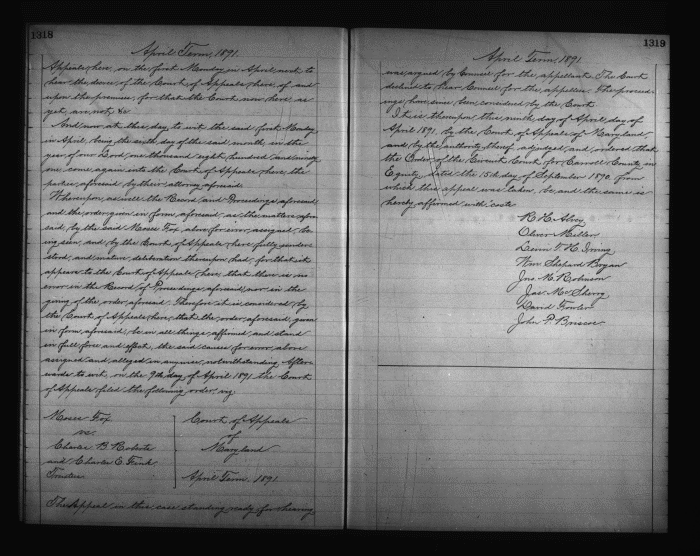 1318
April Term, 1891.
Appeals, here, on the first Monday in April, next to
hear the decree of the Court of Appeals, here, of and
upon the premises, for that the Court now here, as
yet, are not, &c
And now at this day, to wit the said first Monday
in April, being the sixth day of the said month, in the
year of our Lord, one thousand eight hundred and ninety
one, come again into the Court of Appeals, here, the
parties, aforesaid, by their attorneys aforesaid.
Whereupon, as well the Record and Proceedings aforesaid
and the order, given in form, aforesaid, as the matters, afore
said, by the said Moses Fox above for error, assigned, be
ing seen, and by the Court of Appeals, here, fully under
stood, and mature deliberation thereupon had, for that it
appears to the Court of Appeals, here, that there is no
error in the Record & Proceedings aforesaid, nor in the
giving of the order, aforesaid. Therefore it is considered, by
the Court of Appeals, here, that the order, aforesaid, given
in form, aforesaid, be in all things, affirmed, and stand
in full force and effect, the said causes for error, above
assigned and, alleged in anywise, notwithstanding. After-
wards to wit, on the 9th day, of April 1891 the Court
of Appeals filed the following order, viz
Moses Fox
vs.
Charles B. Roberts
and Charles E. Fink
Trustees
Court of Appeals
of
Maryland
April Term. 1891.
The Appeal in this case standing ready for hearing,
1319
April Term, 1891.
was argued by Counsel for the appellant. The Court
declined to hear Counsel for the appellee. The proceed-
ings have since been considered by the Court.
It is thereupon this ninth day of April, day of
April 1891, by the Court of Appeals of Maryland,
and by the authority thereof, adjudged, and ordered that
the Order of the Circuit Court, for Carroll County, in
Equity, dated the 15th day of September 1890, from
which this appeal was taken, be, and the same is
hereby, affirmed with costs.
R. H. Alvey
Oliver Miller
Levin T. H. Irving
Wm Shepard Bryan
Jno. M. Robinson
Jas. McSherry
David Fowler
John P. Briscoe.